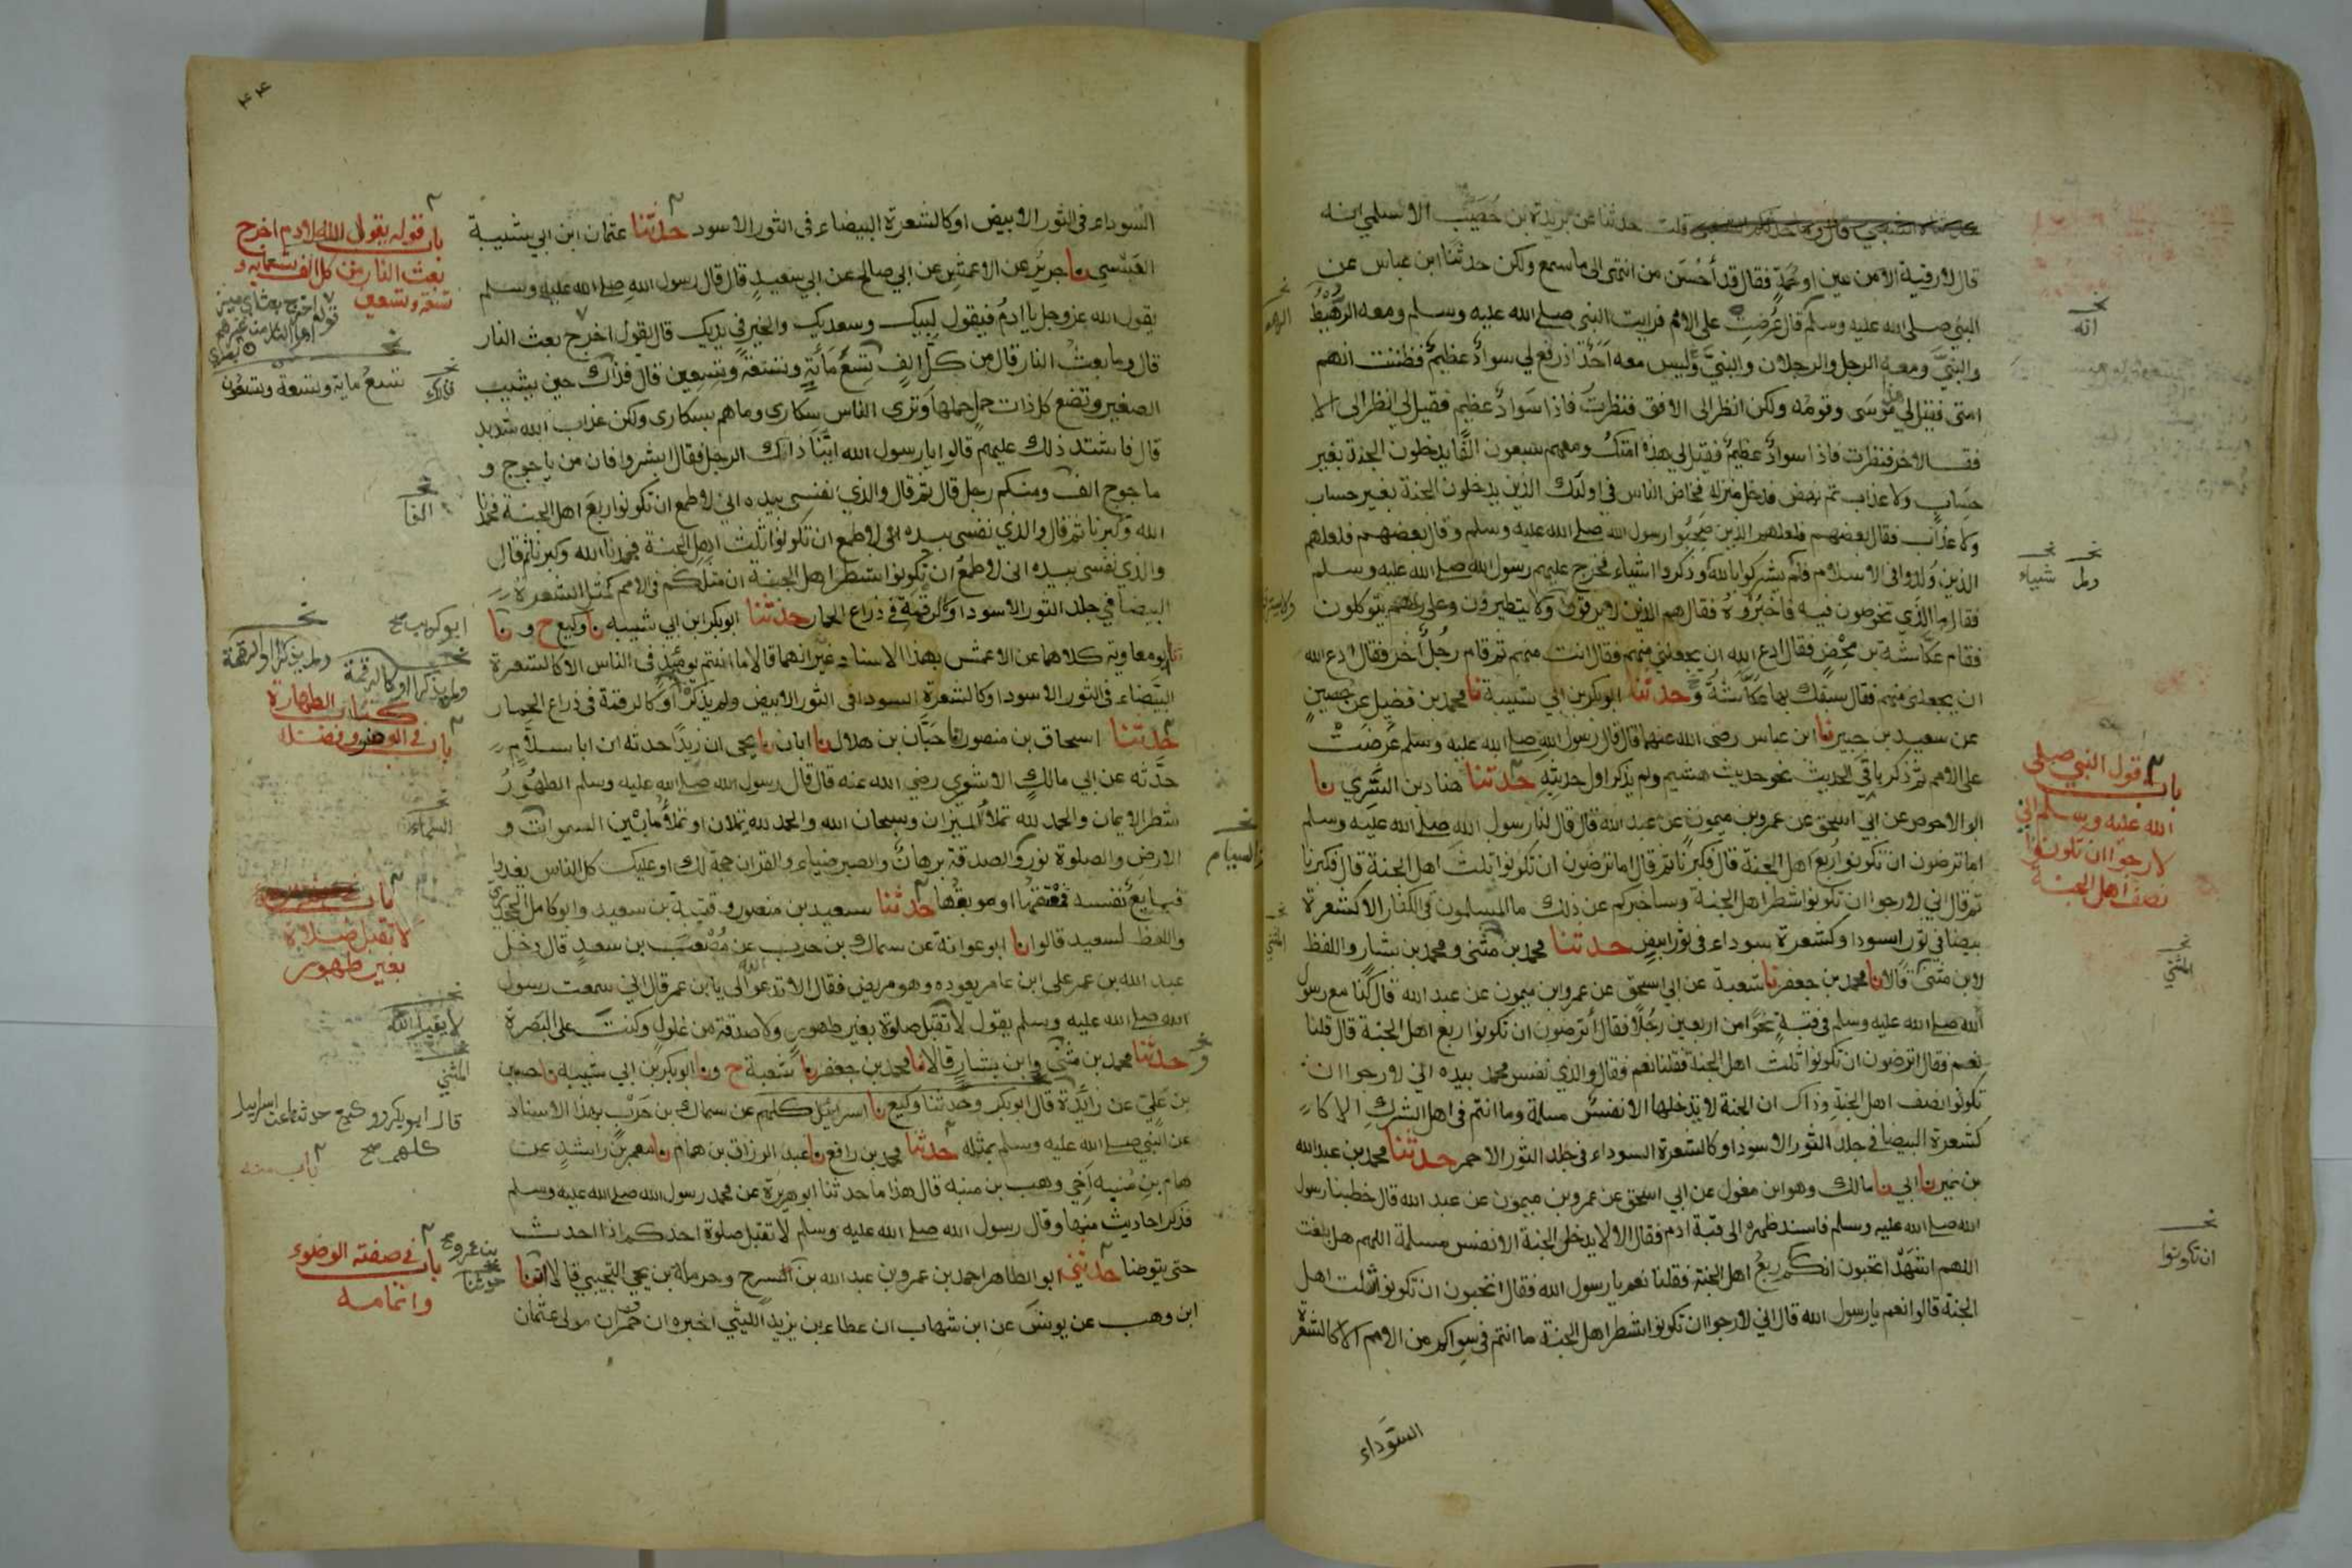 قلت حدثنا عن بريدة بن حصيب الاسلمي انه
قال لا رقية الا من عين او حمة فقال قد احسن من انتهى الى ما سمع ولكن حدثنا ابن عباس عن
النبي صلى الله عليه وسلم قال عرضت على الامم فرايت النبي صلى الله عليه وسلم ومعه الرهيط
والنبي ومعه الرجل والرجلان والنبي وليس معه احد اذ رفع لي سواد عظيم فظننت انهم
امتى فقيل لي هذا موسى وقومه ولكن انظر الى الافق فنظرت فاذا سواد عظيم فقيل لي انظر الى الا
فق الاخر فنظرت فاذا سواد عظيم فقيل لي هذه امتك ومعهم سبعون الفا يدخلون الجنة بغير
حساب ولا عذاب ثم نهض فدخل منزله فخاض الناس في اولئك الذين يدخلون الجنة بغير حساب
ولا عذاب فقال بعضهم فلعلهم الذين صحبوا رسول الله صلى الله عليه وسلم وقال بعضهم فلعلهم
الذين ولدوا فى الاسلام فلم يشركوا بالله وذكروا اشياء فخرج عليهم رسول الله صلى الله عليه وسلم
فقال ما الذي تخوضون فيه فاخبروه فقال هم الذين لا يرقون ولا يتطيرون وعلى ربهم يتوكلون
فقام عكاشة بن محصن فقال ادع الله ان يجعلني منهم فقال انت منهم ثم قام رجل اخر فقال ادع الله
ان يجعلنى منهم فقال سبقك بها عكاشة وحدثنا ابو بكر بن ابي شيبة نا محمد بن فضيل عن حصين
عن سعيد بن جبير نا ابن عباس رضى الله عنهما قال قال رسول الله صلى الله عليه وسلم عرضت
على الامم ثم ذكر باقي الحديث نحو حديث هشيم ولم يذكر اول حديثه حدثنا هناد بن السري نا
ابو الاحوص عن ابي اسحق عن عمرو بن ميمون عن عبد الله قال قال لنا رسول الله صلى الله عليه وسلم
اما ترضون ان تكونوا ربع اهل الجنة قال فكبرنا ثم قال اما ترضون ان تكونوا ثلث اهل الجنة قال فكبرنا
ثم قال اني لارجوا ان تكونوا شطر اهل الجنة وساخبركم عن ذلك ما المسلمون في الكفار الا كشعرة
بيضا في ثور اسود او كشعرة سوداء فى ثور ابيض حدثنا محمد بن مثنى ومحمد بن بشار واللفظ
لابن مثنى قالا نا محمد بن جعفر نا شعبة عن ابي اسحق عن عمرو بن ميمون عن عبد الله قال كنا مع رسول
الله صلى الله عليه وسلم في قبة نحوا من اربعين رجلا فقال أترضون ان تكونوا ربع اهل الجنة قال قلنا
نعم فقال اترضون ان تكونوا ثلث اهل الجنة فقلنا نعم فقال والذي نفس محمد بيده اني لارجوا ان
تكونوا نصف اهل الجنة وذاك ان الجنة لا يدخلها الا نفس مسلمة وما انتم فى اهل الشرك الا كا
كشعرة البيضا في جلد الثور الاسود او كالشعرة السوداء فى جلد الثور الاحمر حدثنا محمد بن عبد الله
بن نمير نا ابي نا مالك وهو ابن مغول عن ابي اسحق عن عمرو بن ميمون عن عبد الله قال خطبنا رسول
الله صلى الله عليه وسلم فاسند ظهره الى قبة ادم فقال الا لا يدخل الجنة الا نفس مسلمة اللهم هل بلغت
اللهم اشهد اتحبون انكم ربع اهل الجنة فقلنا نعم يا رسول الله فقال اتحبون ان تكونوا ثلث اهل
الجنة قالوا نعم يا رسول الله قال اني لارجوا ان تكونوا شطر اهل الجنة ما انتم في سواكم من الامم الا كالشعرة
السوداء
انه
شيباء
باب قول النبي صلى
الله عليه وسلم اني
لارجوا ان تكونوا
نصف اهل الجنة
المثني
ان تكونوا
السوداء فى الثور الابيض او كالشعرة البيضاء فى الثور الاسود حدثنا عثمان ابن ابي شيبة
العبسي نا جرير عن الاعمش عن ابي صالح عن ابي سعيد قال قال رسول الله صلى الله عليه وسلم
يقول الله عز وجل يا ادم فيقول لبيك وسعديك والخير في يديك قال يقول اخرج بعث النار
قال وما بعث النار قال من كل الف تسع مائة وتسعة وتسعين قال فذاك حين يشيب
الصغير وتضع كل ذات حمل حملها وترى الناس سكارى وما هم بسكارى ولكن عذاب الله شديد
قال فاشتد ذلك عليهم قالوا يا رسول الله اينا ذلك الرجل فقال ابشروا فان من ياجوج و
ماجوج الف ومنكم رجل قال ثم قال والذي نفسي بيده اني لاطمع ان تكونوا ربع اهل الجنة فحمدنا
الله وكبرنا ثم قال والذي نفسى بيده انى لاطمع ان تكونوا ثلث اهل الجنة فحمدنا الله وكبرنا ثم قال
والذى نفسى بيده انى لاطمع ان تكونوا شطر اهل الجنة ان مثلكم فى الامم كمثل الشعرة
البيضا في جلد الثور الاسود او كالرقمة في ذراع الحمار حدثنا ابو بكر ابن ابي شيبه نا وكيع ح و نا
نا ابو معاوية كلاهما عن الاعمش بهذا الاسناد غير انهما قالا ما انتم يومئذ فى الناس الا كالشعرة
البيضاء فى الثور الاسود او كالشعرة السودا فى الثور الابيض ولم يذكر او كالرقمة فى ذراع الحمار
حدثنا اسحاق بن منصور نا حبان بن هلال نا ابان نا يحيى ان زيدا حدثه ان ابا سلام
حدثه عن ابي مالك الاشعري رضي الله عنه قال قال رسول الله صلى الله عليه وسلم الطهور
شطر الايمان والحمد لله تملأ الميزان وسبحان الله والحمد لله تملان او تملأ ما بين السموات و
الارض والصلوة نور والصدقة برهان والصبر ضياء والقران حجة لك او عليك كل الناس يغدوا
فبايع نفسه فمعتقها او موبقها حدثنا سعيد بن منصور وقتيبة بن سعيد وابو كامل الجحدري
واللفظ لسعيد قالوا نا ابو عوانة عن سماك بن حرب عن مصعب بن سعد قال دخل
عبد الله بن عمر على ابن عامر يعوده وهو مريض فقال الا تدعو الله لى يا ابن عمر قال اني سمعت رسول
الله صلى الله عليه وسلم يقول لا تقبل صلوة بغير طهور ولا صدقة من غلول وكنت على البصرة
حدثنا محمد بن مثنى وابن بشار قالا نا محمد بن جعفر نا شعبة ح ونا ابو بكر بن ابي شيبه نا حسين
بن علي عن زائدة قال ابو بكر وحدثنا وكيع نا اسرائيل كلهم عن سماك بن حرب بهذا الاسناد
عن النبي صلى الله عليه وسلم بمثله حدثنا محمد بن رافع نا عبد الرزاق بن همام نا معمر بن راشد عن
همام بن منبه اخي وهب بن منبه قال هذا ما حدثنا ابو هريرة عن محمد رسول الله صلى الله عليه وسلم
فذكر احاديث منها وقال رسول الله صلى الله عليه وسلم لا تقبل صلوة احدكم اذا احدث
حتى يتوضا حدثني ابو الطاهر احمد بن عمرو بن عبد الله بن السرح وحرملة بن يحيى التجيبي قالا انا
ابن وهب عن يونس عن ابن شهاب ان عطاء بن يزيد الليثي اخبره ان حمران مولى عثمان
باب قوله يقول الله لادم اخرج
بعث النار من كل الف تسعمايه و
تسعة وتسعين
تسع ماية وتسعة وتسعون
الفا
ابو كريب صح
كتاب الطهارة
باب فى الوضو وفضله
باب
لا تقبل صلاة
بغير طهور
المثني
قال ابو بكر ووكيع حدثنا عن اسرائيل
كلهم صح
باب منه
باب في صفة الوضوء
واتمامه
بن عمرو صح